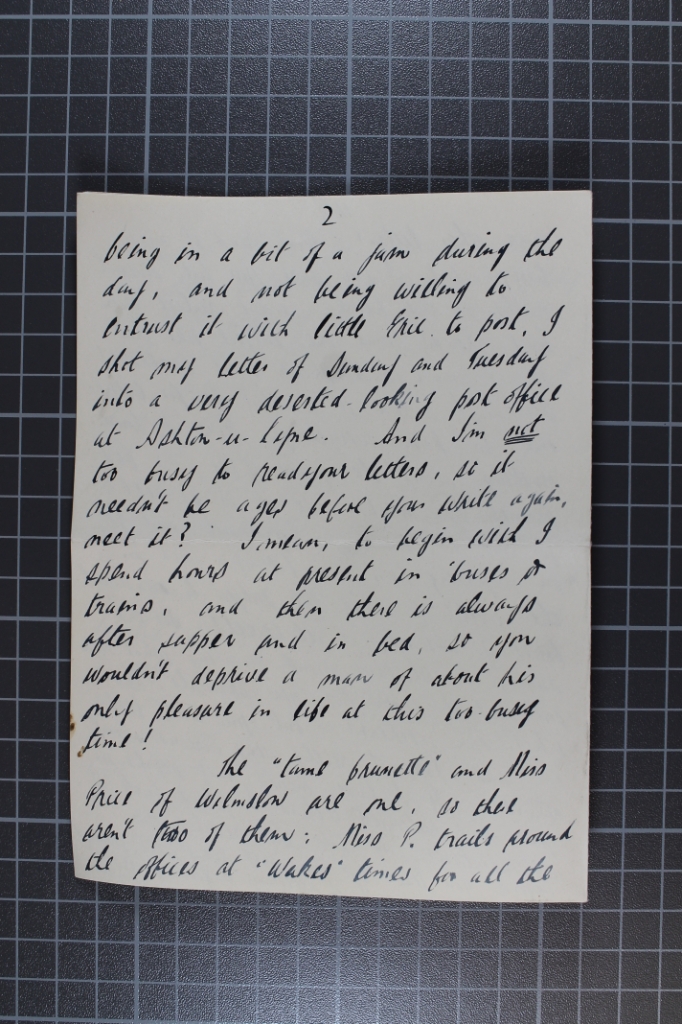 2
being in a bit of a jam during the
day, and not being willing to
entrust it with little Eric to post, I
shot my letter of Sunday and Tuesday
into a very deserted-looking post office
at Ashton-u-Lyne. And I'm not
too busy to read your letters, so it
needn't be ages before you write again,
need it? I mean, to begin with I
spend hours at present in 'buses or
trains, and then there is always
after supper and in bed, so you
wouldn't deprive a man of about his
only pleasure in life at this too-busy
time!
The "tame brunette" and Miss
Price of Wilmslow are one, so there
aren't two of them: Miss P. trails around
the offices at "Wakes" times for all the